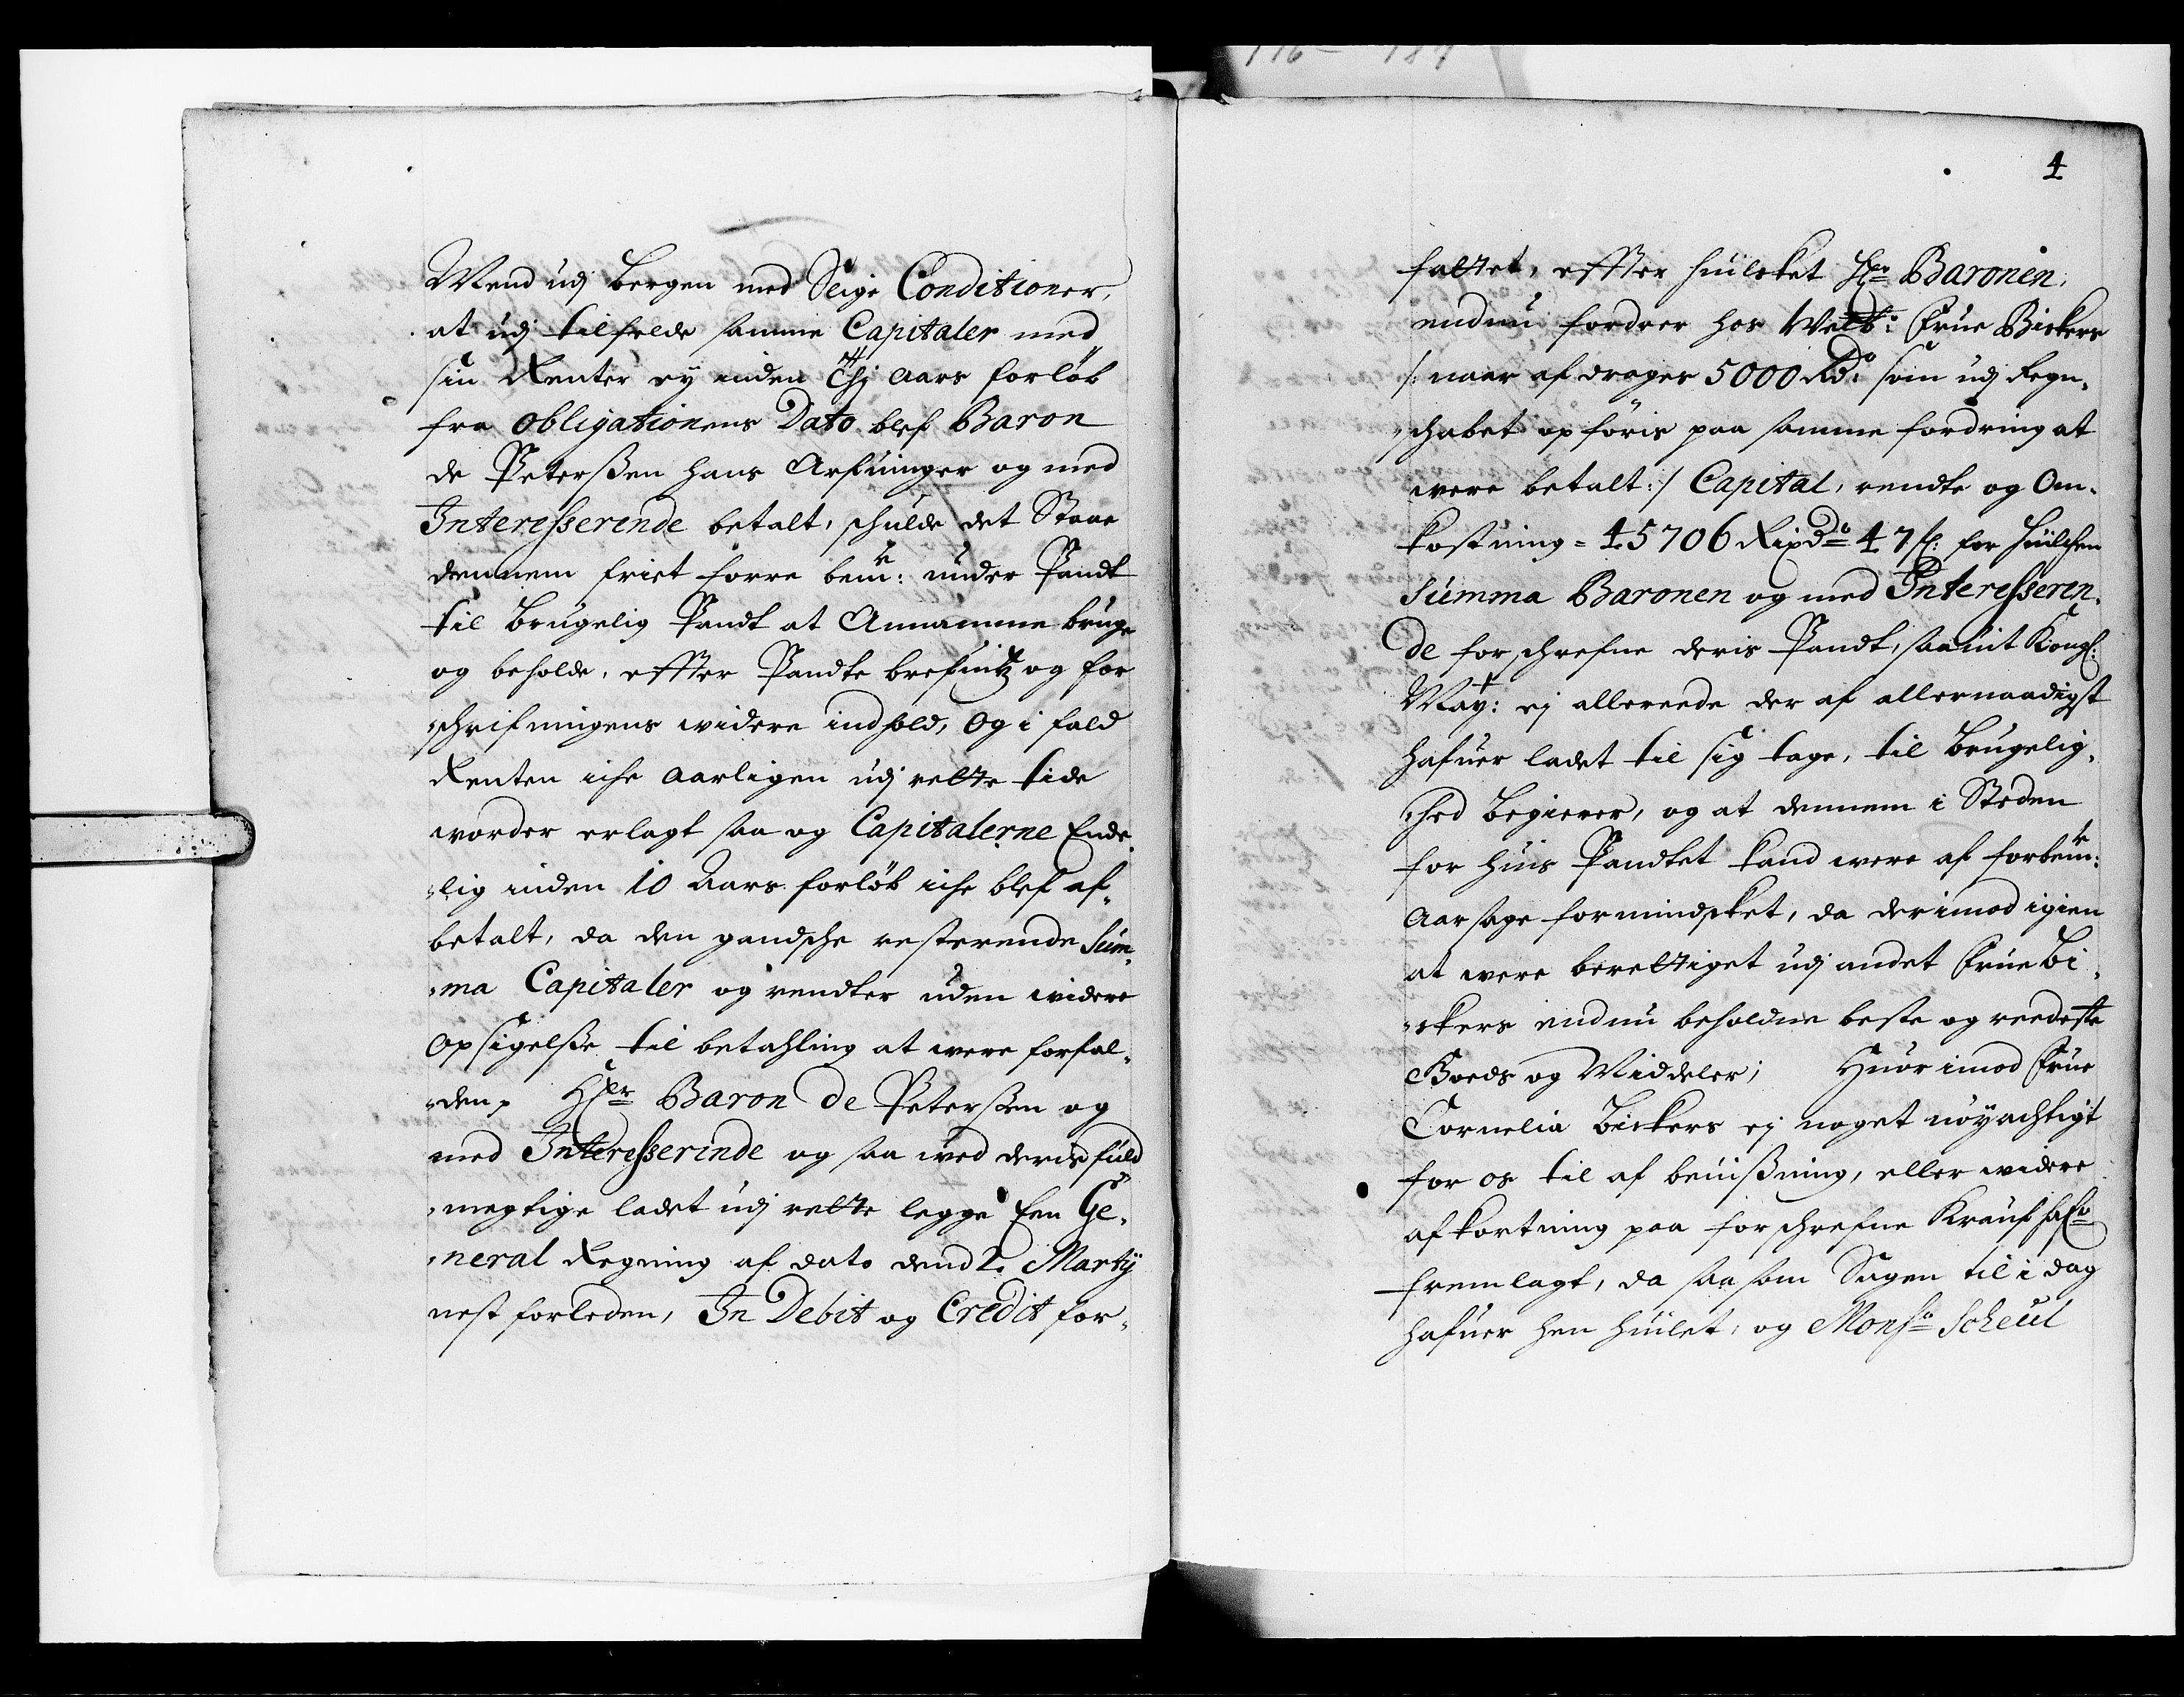 Mend udj Bergen med Slige Conditioner,
at udj tilfelde samme Capitaler med
sin Renter ey inden Thj Aars forløb
fra Obligationens Dato blef Baron
de Peterßen hans Arfuinger og med
Interesserende betalt, schulde det Staae
dennem friet forre bemte: under Pandt
til Brugelig Pandt at Annamme bruge
og beholde, effter Pandte brefuitz og for
schrifningens widere indhold, Og i fald
Renten iche Aarligen udj rette tide
worder erlagt saa og Capitalerne Ende,
,lig inden 10 Aars forløb iche blef af,
betalt, da den gandsche resterende Sum,
,ma Capitaler og rendter uden widere
Opsigelße til betahling at were forfal,
,den, Hr Baron de Peterßen og
med Interesserinde og saa wed deris fuld
,megtige ladet udj rette legge Een Ge,
,neral Regning af dato dend 2. Marty
nest forleden, In Debit og Credit for,
4
fattet, effter huilcket Hr Baronen,
endnu fordrer hos Welb: Frue Bickers
/: naar af drages 5000 Rdr: som udj Regn,
,schabet opføris paa samme fordring at
were betalt :/ Capital, rendte og Om,
kostning = 45706 Rixdr 47 s: for huilchen
Summa Baronen og med Interesseren,
de forschrefne deris Pandt, saauit Kongl:
May: ej allereede der af allernaadigst
hafuer ladet til sig tage, til Brugelig,
,hed Begierer, og at dennem i Steden
for huis Pandtet kand were af forbemte:
Aarsage formindschet, da derimod igien
at were berettiget udj andet Frue Bi,
,ckers endnu beholdne beste og reedeste
Boeds og Middeler; Huorimod Frue
Cornelia Bickers ej noget nøyachtigt
for os til af beuißning, eller widere
afkortning paa forschrefne Krauf hafr
fremlagt, da saasom Sagen til i dag
hafuer hen huilet, og Monsr Scheul